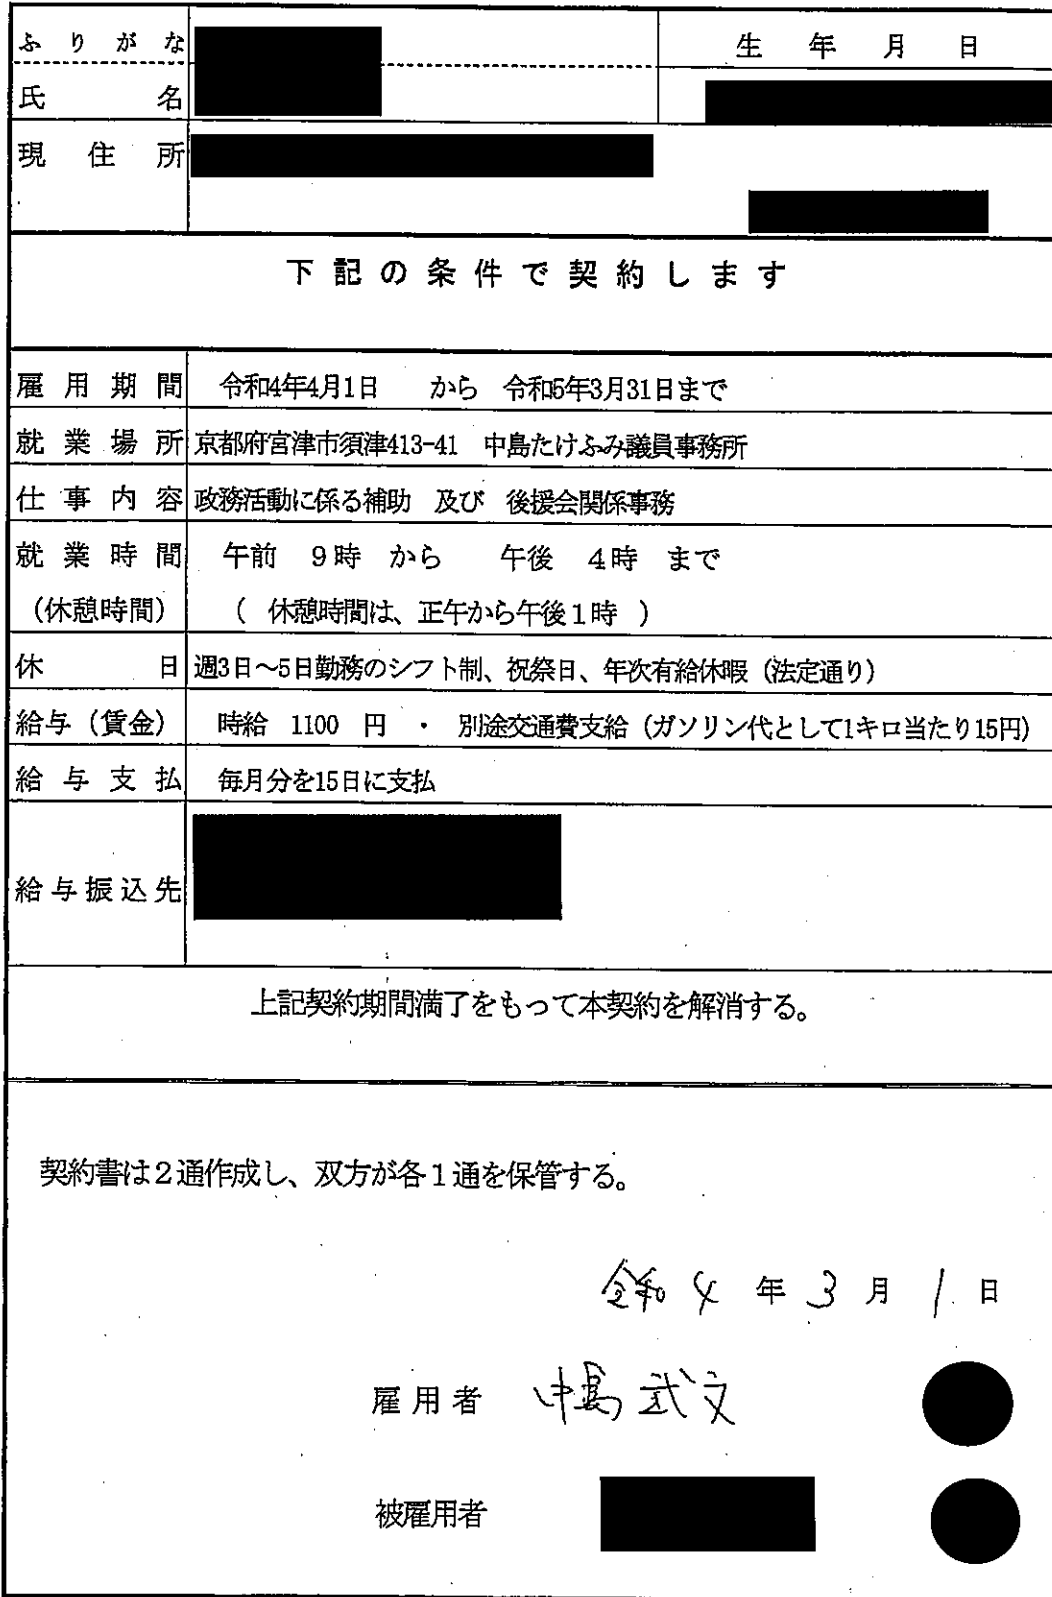 ふりがな
生年月日
氏名
現住所
下記の条件で契約します
雇用期間 令和4年4月1日 から 令和5年3月31日まで
就業場所 京都府宮津市須津413-41 中島たけふみ議員事務所
仕事内容 政務活動に係る補助 及び 後援会関係事務
就業時間 午前 9時 から 午後 4時 まで
(休憩時間) ( 休憩時間は、正午から午後1時 )
休日 週3日~5日勤務のシフト制、祝祭日、年次有給休暇(法定通り)
給与(賃金) 時給 1100 円 ・ 別途交通費支給(ガソリン代として1キロ当たり15円)
給与支払 毎月分を15日に支払
給与振込先
上記契約期間満了をもって本契約を解消する。
契約書は2通作成し、双方が各1通を保管する。
令和 4 年 3 月 1 日
雇用者 中島武文
被雇用者